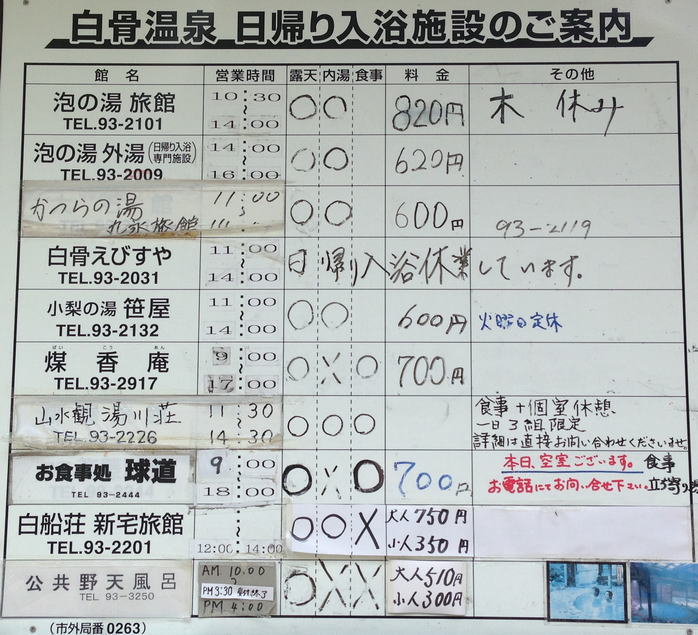 白骨温泉 日帰り入浴施設のご案内
館名 営業時間 露天 内湯 食事 料金 その他
泡の湯 旅館 10:30 〇 〇 820円 木 休み
TEL.93-2101 〜 14:00
泡の湯 外湯 (日帰り入浴専門施設) 14:00 〇 〇 620円
TEL.93-2009 〜 16:00
かつらの湯 11:00 〇 〇 600円
丸永旅館 〜 93-2119
白骨えびすや 11:00 日帰り入浴休業しています。
TEL.93-2031 〜 14:00
小梨の湯 笹屋 11:00 〇 〇 600円 火曜日定休
TEL.93-2132 〜 14:00
ばい こう あん
煤香庵 9:00 〇 × 〇 700円
TEL.93-2917 〜 17:00
山水観 湯川荘 11:30 〇 〇 〇 食事+個室休憩
一日3組限定
TEL 93-2226 〜 14 30 詳細は直接お問い合わせくださいませ。
お食事処 球道 9:00 〇 × 〇 700円 本日、空室ございます。 食事
TEL 93-2444 〜 18:00 お電話にてお問い合せ下さい。 立ち寄り
白船荘 新宅旅館 〇 〇 × 大人750円
TEL.93-2201 12:00 14:00 小人350円
公共野天風呂 AM 10.00 〇 × × 大人510円
TEL 93-3250 PM3:30 受付終了 小人300円
PM 4:00
(市外局番 0263)